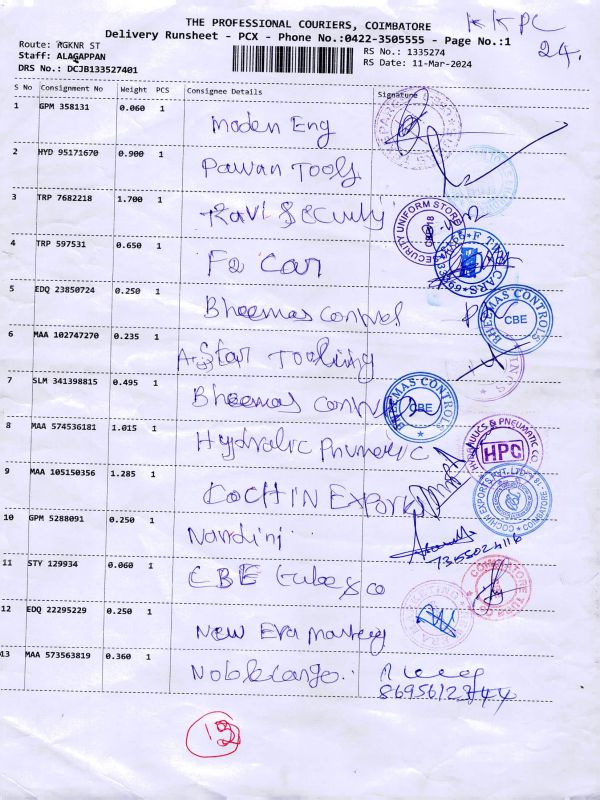 THE PROFESSIONAL COURIERS, COIMBATORE
KKPC
Delivery Runsheet - PCX - Phone No.:0422-3505555 - Page No.:1
24.
Route: RGKNR ST
RS No.: 1335274
Staff: ALAGAPPAN
RS Date: 11-Mar-2024
DRS No.: DCJB133527401
S No Consignment No Weight PCS Consignee Details Signature
1 GPM 358131 0.060 1 Moden Eng
2 HYD 95171670 0.900 1 Pawan Tools
3 TRP 7682218 1.700 1 Ravi Security
SECURITY UNIFORM STORE
4 TRP 597531 0.650 1 Fa Car
5 EDQ 23850724 0.250 1 Bheemas Control
BHEEMAS CONTROLS
CBE
6 MAA 102747270 0.235 1 A Star Tooling
7 SLM 341398815 0.495 1 Bheemas Control
BHEEMAS CONTROL
CBE
8 MAA 574536181 1.015 1 Hydralic Phumetic C
HYDRAULICS & PNEUMATIC CO
HPC
9 MAA 105150356 1.285 1 COCHIN EXPORT
COCHIN EXPORTS PVT. LTD
10 GPM 5288091 0.250 1 Nandini
7355024116
11 STY 129934 0.060 1 CBE Tube & co
COIMBATORE TUBE
12 EDQ 22295229 0.250 1 New Era
13 MAA 573563819 0.360 1 Noble cargo
13